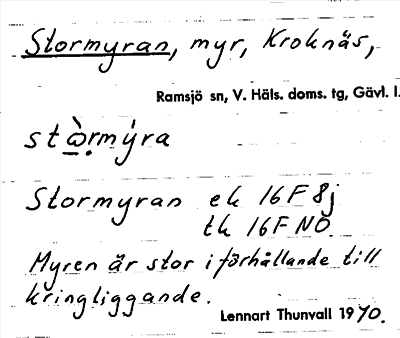 Stormyran, myr, Kroknäs,
Ramsjö sn, V. Häls. doms. tg, Gävl. l.
stὼ̣rmýra
Stormyran ek 16F8j
tk 16F NO
Myren är stor i förhållande till
kringliggande.
Lennart Thunvall 1970.